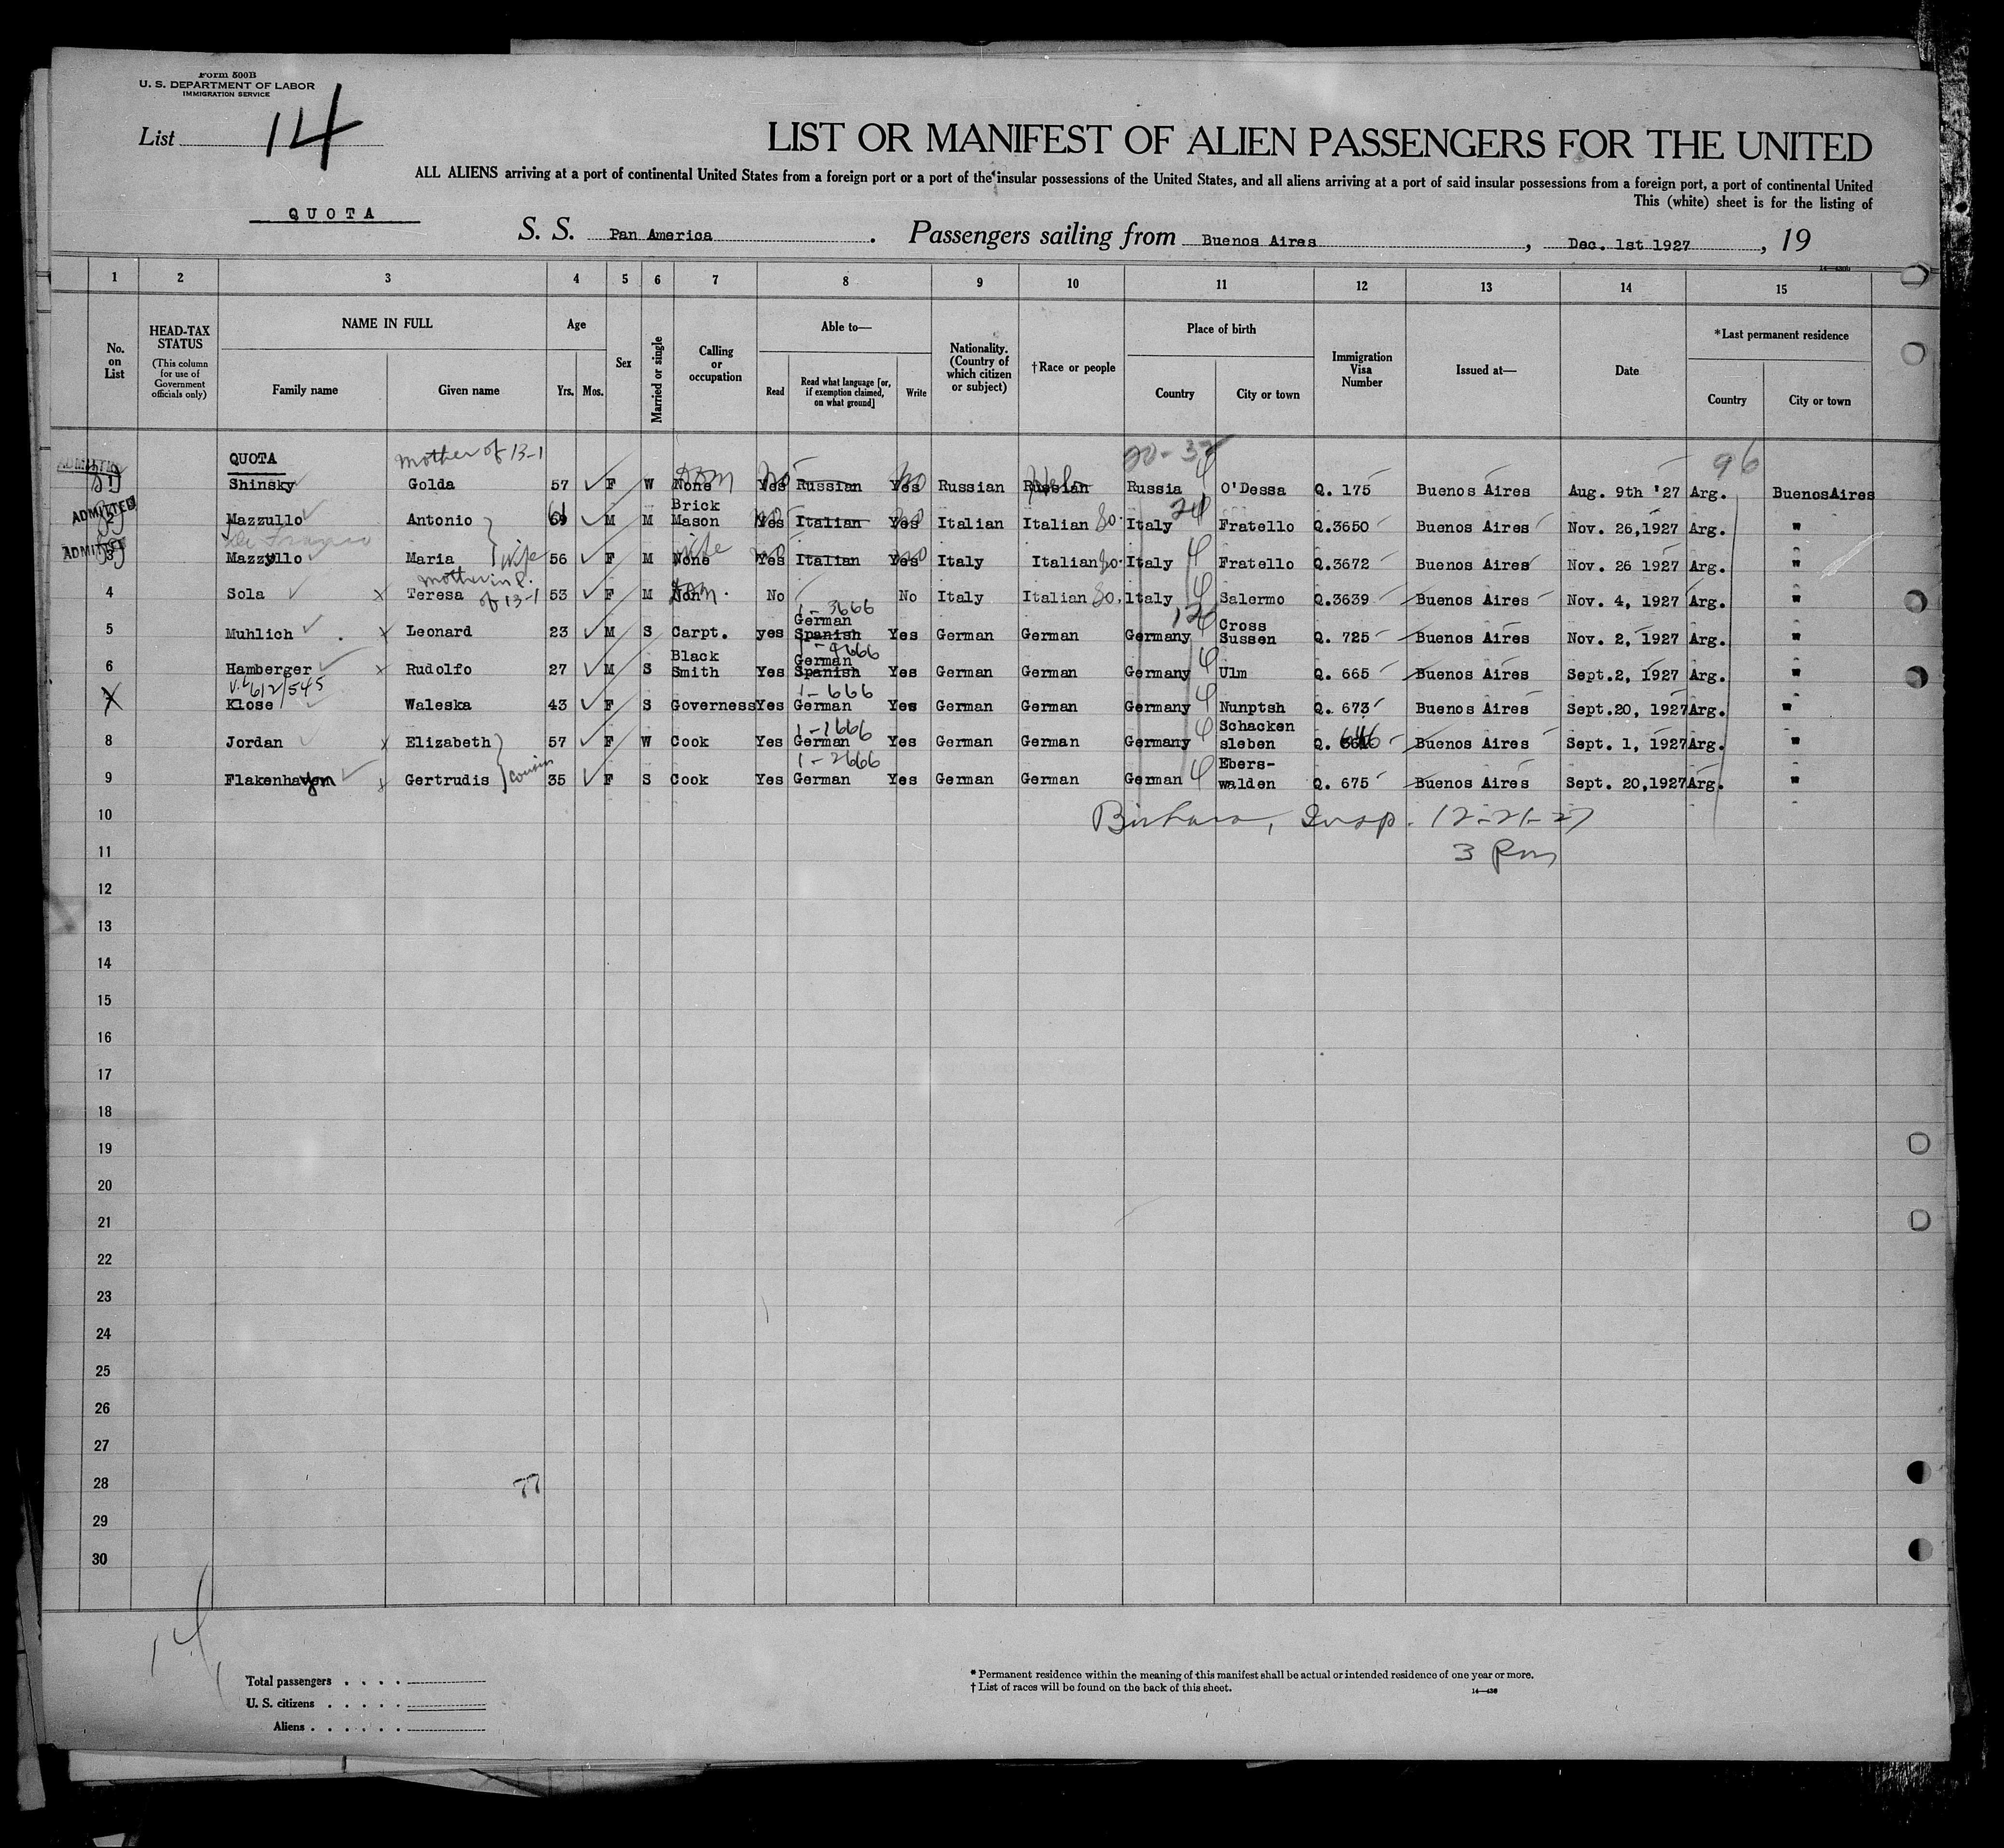 Form 500B
U. S. DEPARTMENT OF LABOR
IMMIGRATION SERVICE
List 14
LIST OR MANIFEST OF ALIEN PASSENGERS FOR THE UNITED
ALL ALIENS arriving at a port of continental United States from a foreign port or a port of the insular possessions of the United States, and all aliens arriving at a port of said insular possessions from a foreign port, a port of continental United
This (white) sheet is for the listing of
QUOTA
S. S. Pan America. Passengers sailing from Buenos Aires, Dec. 1st 1927, 19
1 2 3 4 5 6 7 8 9 10 11 12 13 14 15
No. on List
HEAD-TAX STATUS
(This column for use of Government officials only)
NAME IN FULL
Family name Given name
Age
Yrs. Mos.
Sex
Married or single
Calling or occupation
Able to—
Read Read what language [or, if exemption claimed, on what ground] Write
Nationality. (Country of which citizen or subject)
†Race or people
Place of birth
Country City or town
Immigration Visa Number
Issued at—
Date
*Last permanent residence
Country City or town
QUOTA mother of 13-1 96
ADMITTED
1 Shinsky Golda 57 F W None Yes No Russian Yes No Russian Russian Russia O'Dessa Q. 175 Buenos Aires Aug. 9th '27 Arg. BuenosAires
ADMITTED
2 Mazzullo Antonio 59 61 M M Brick Mason Yes No Italian Yes No Italian Italian So. Italy 24 Fratello Q.3650 Buenos Aires Nov. 26,1927 Arg. "
ADMITTED
3 Mazzyllo Maria wife 56 F M None wife Yes No Italian Yes No Italy Italian So. Italy Fratello Q.3672 Buenos Aires Nov. 26 1927 Arg. "
4 Sola Teresa mother in l. of 13-1 53 F M Non No No Italy Italian So. Italy Salermo Q.3639 Buenos Aires Nov. 4, 1927 Arg. "
1-3666
5 Muhlich Leonard 23 M S Carpt. yes German Spanish Yes German German Germany 12 Cross Sussen Q. 725 Buenos Aires Nov. 2, 1927 Arg. "
1-4666
6 Hamberger Rudolfo 27 M S Black Smith Yes German Spanish Yes German German Germany Ulm Q. 665 Buenos Aires Sept.2, 1927 Arg. "
V.L 612/545 1-666
X Klose Waleska 43 F S Governess Yes German Yes German German Germany Nunptsh Q. 673 Buenos Aires Sept.20, 1927 Arg. "
1-1666
8 Jordan Elizabeth 57 F W Cook Yes German Yes German German Germany Schacken sleben Q. 646 Buenos Aires Sept. 1, 1927 Arg. "
1-2666
9 Flakenhagen Gertrudis cousin 35 F S Cook Yes German Yes German German German Ebers-walden Q. 675 Buenos Aires Sept. 20,1927 Arg. "
10 Insp. 12-21-27
11 3 Pm
12
13
14
15
16
17
18
19
20
21
22
23
24
25
26
27
28 77
29
30
14
Total passengers . . . .
U. S. citizens . . . . .
Aliens . . . . . .
* Permanent residence within the meaning of this manifest shall be actual or intended residence of one year or more.
† List of races will be found on the back of this sheet.
14—436